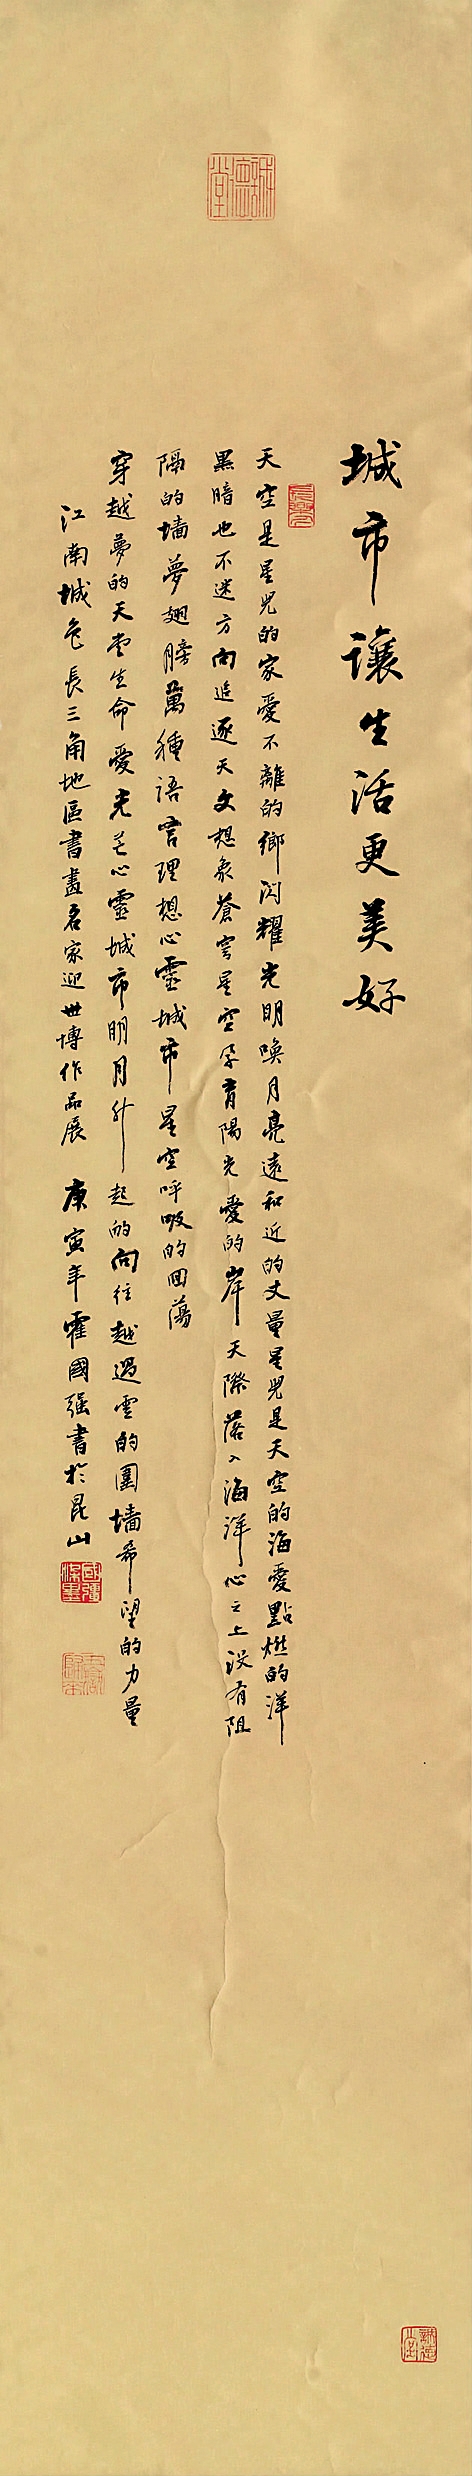 城市讓生活更美好
天空是星光的家愛不離的鄉闪耀光明喚月亮遠和近的丈量星光是天空的海愛點燃的洋
黑暗也不迷方向追逐天文想象蒼穹星空孕育陽光愛的岸天際落入海洋心之上没有阻
隔的墙夢翅膀萬種语言理想心靈城市星空呼吸的回蕩
穿越夢的天堂生命愛光芒心靈城市明月升起的向往越過雲的圍墙希望的力量
江南城色長三角地區書畫名家迎世博作品展 庚寅年霍國强書於昆山